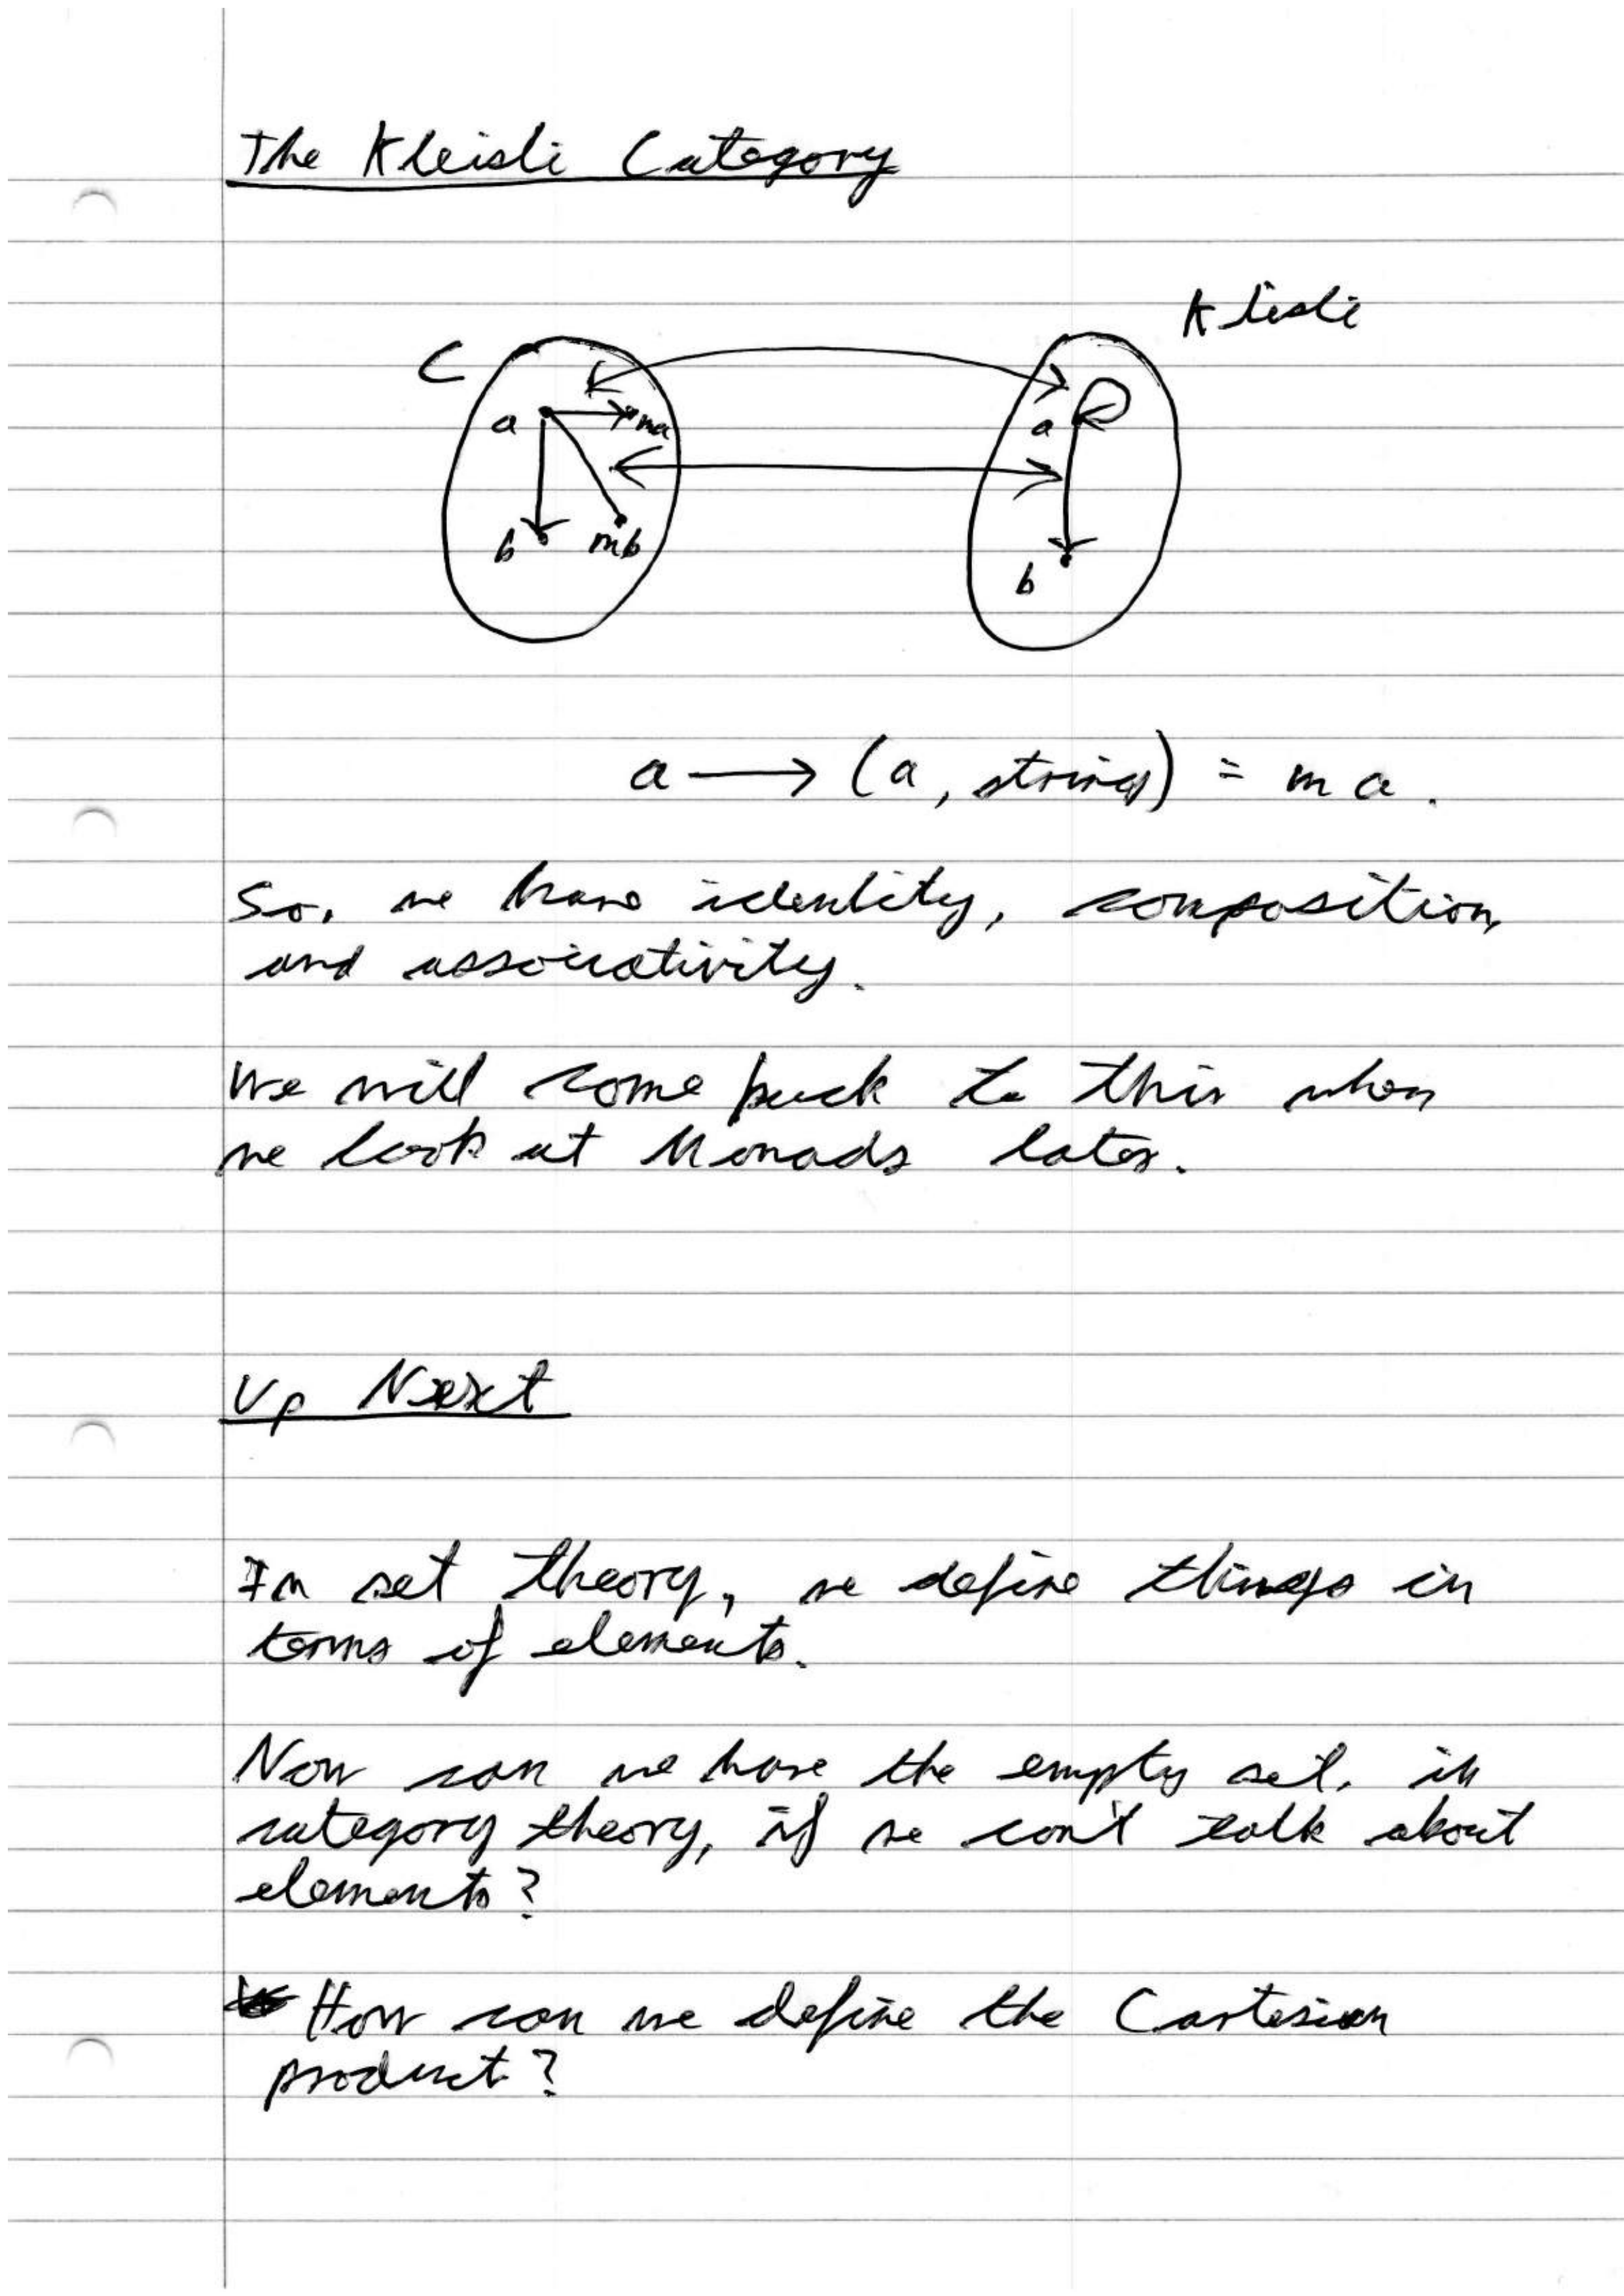 The Kleisli Category
Kliesli
C
a
ma
a
b
mb
b
a → (a, string) = m a.
So, we have identity, composition,
and associativity.
We will come back to this when
we look at Monads later.
Up Next
In set theory, we define things in
terms of elements.
Now can we have the empty set, in
category theory, if we can't talk about
elements?
How can we define the Cartesian
product?